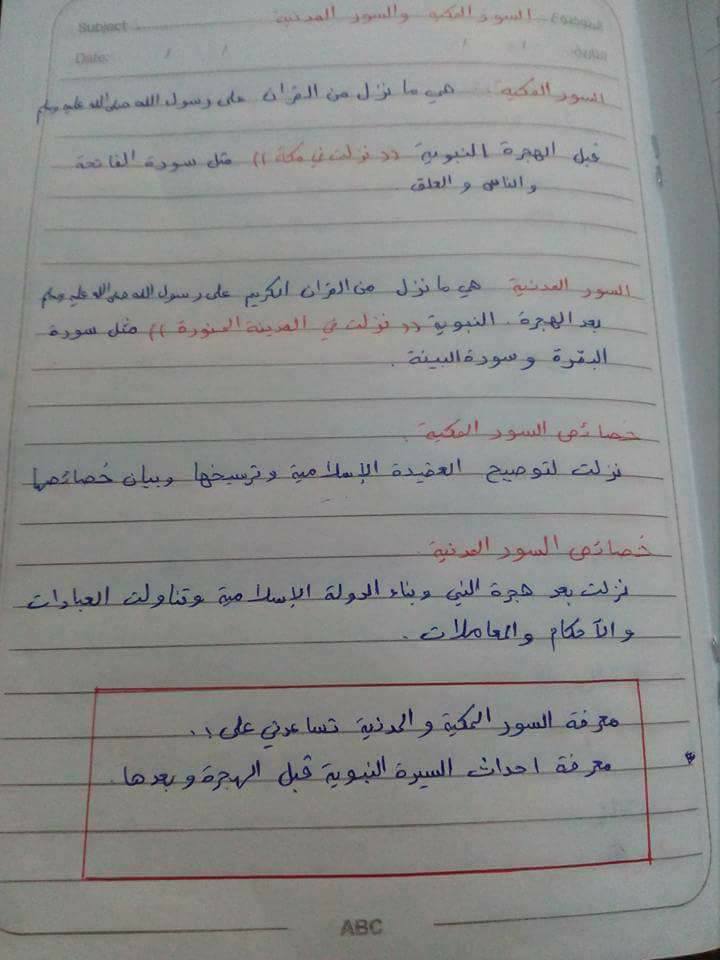 Subject السور المكية والسور المدنية الموضوع
Date: / / / / التاريخ
السور المكية: هي ما نزل من القران على رسول الله صلى الله عليه وسلم
قبل الهجرة النبوية (( نزلت في مكة )) مثل سورة الفاتحة
والناس والعلق.
السور المدنية هي ما نزل من القران الكريم على رسول الله صلى الله عليه وسلم
بعد الهجرة. النبوية (( نزلت في المدينة المنورة )) مثل سورة
البقرة وسورة البينة.
خصائص السور المكية.
نزلت لتوضيح العقيدة الإسلامية وترسيخها وبيان خصائصها
خصائص السور المدنية.
نزلت بعد هجرة النبي وبناء الدولة الإسلامية وتناولت العبادات
والأحكام والمعاملات.
معرفة السور المكية والمدنية تساعدني على:.
معرفة احداث السيرة النبوية قبل الهجرة وبعدها.
ABC